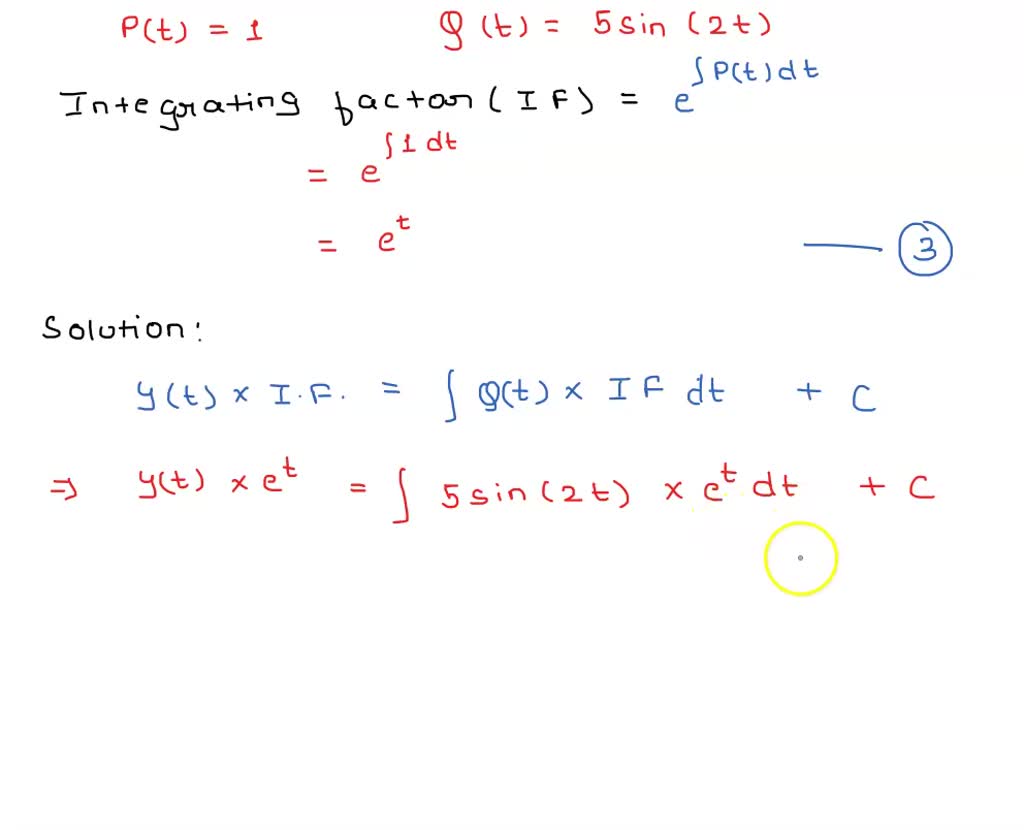 P(t) = 1 Q(t) = 5 sin (2t)
Integrating factor (IF) = e^∫P(t)dt
= e^∫1 dt
= e^t —— ③
Solution:
y(t) × I.F. = ∫ Q(t) × IF dt + C
⇒ y(t) × e^t = ∫ 5 sin (2t) × e^t dt + C